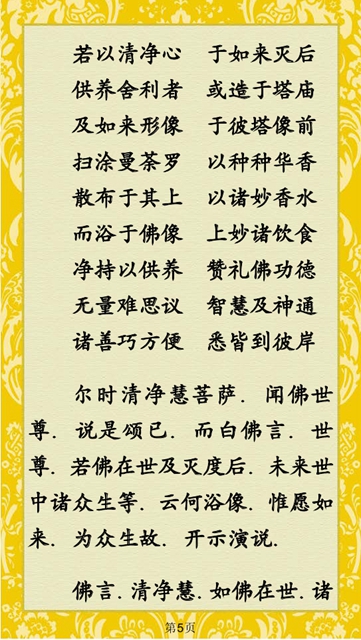 若以清净心　于如来灭后
供养舍利者　或造于塔庙
及如来形像　于彼塔像前
扫涂曼荼罗　以种种华香
散布于其上　以诸妙香水
而浴于佛像　上妙诸饮食
净持以供养　赞礼佛功德
无量难思议　智慧及神通
诸善巧方便　悉皆到彼岸
尔时清净慧菩萨．闻佛世
尊．说是颂已．而白佛言．世
尊．若佛在世及灭度后．未来世
中诸众生等．云何浴像．惟愿如
来．为众生故．开示演说．
佛言．清净慧．如佛在世．诸
第5页